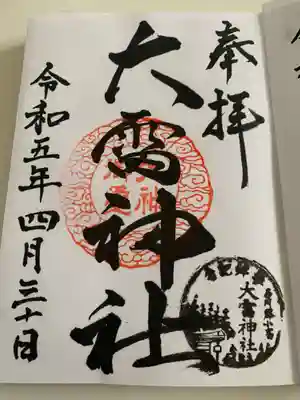 奉拝
大雷神社
令和五年四月三十日
大雷神社